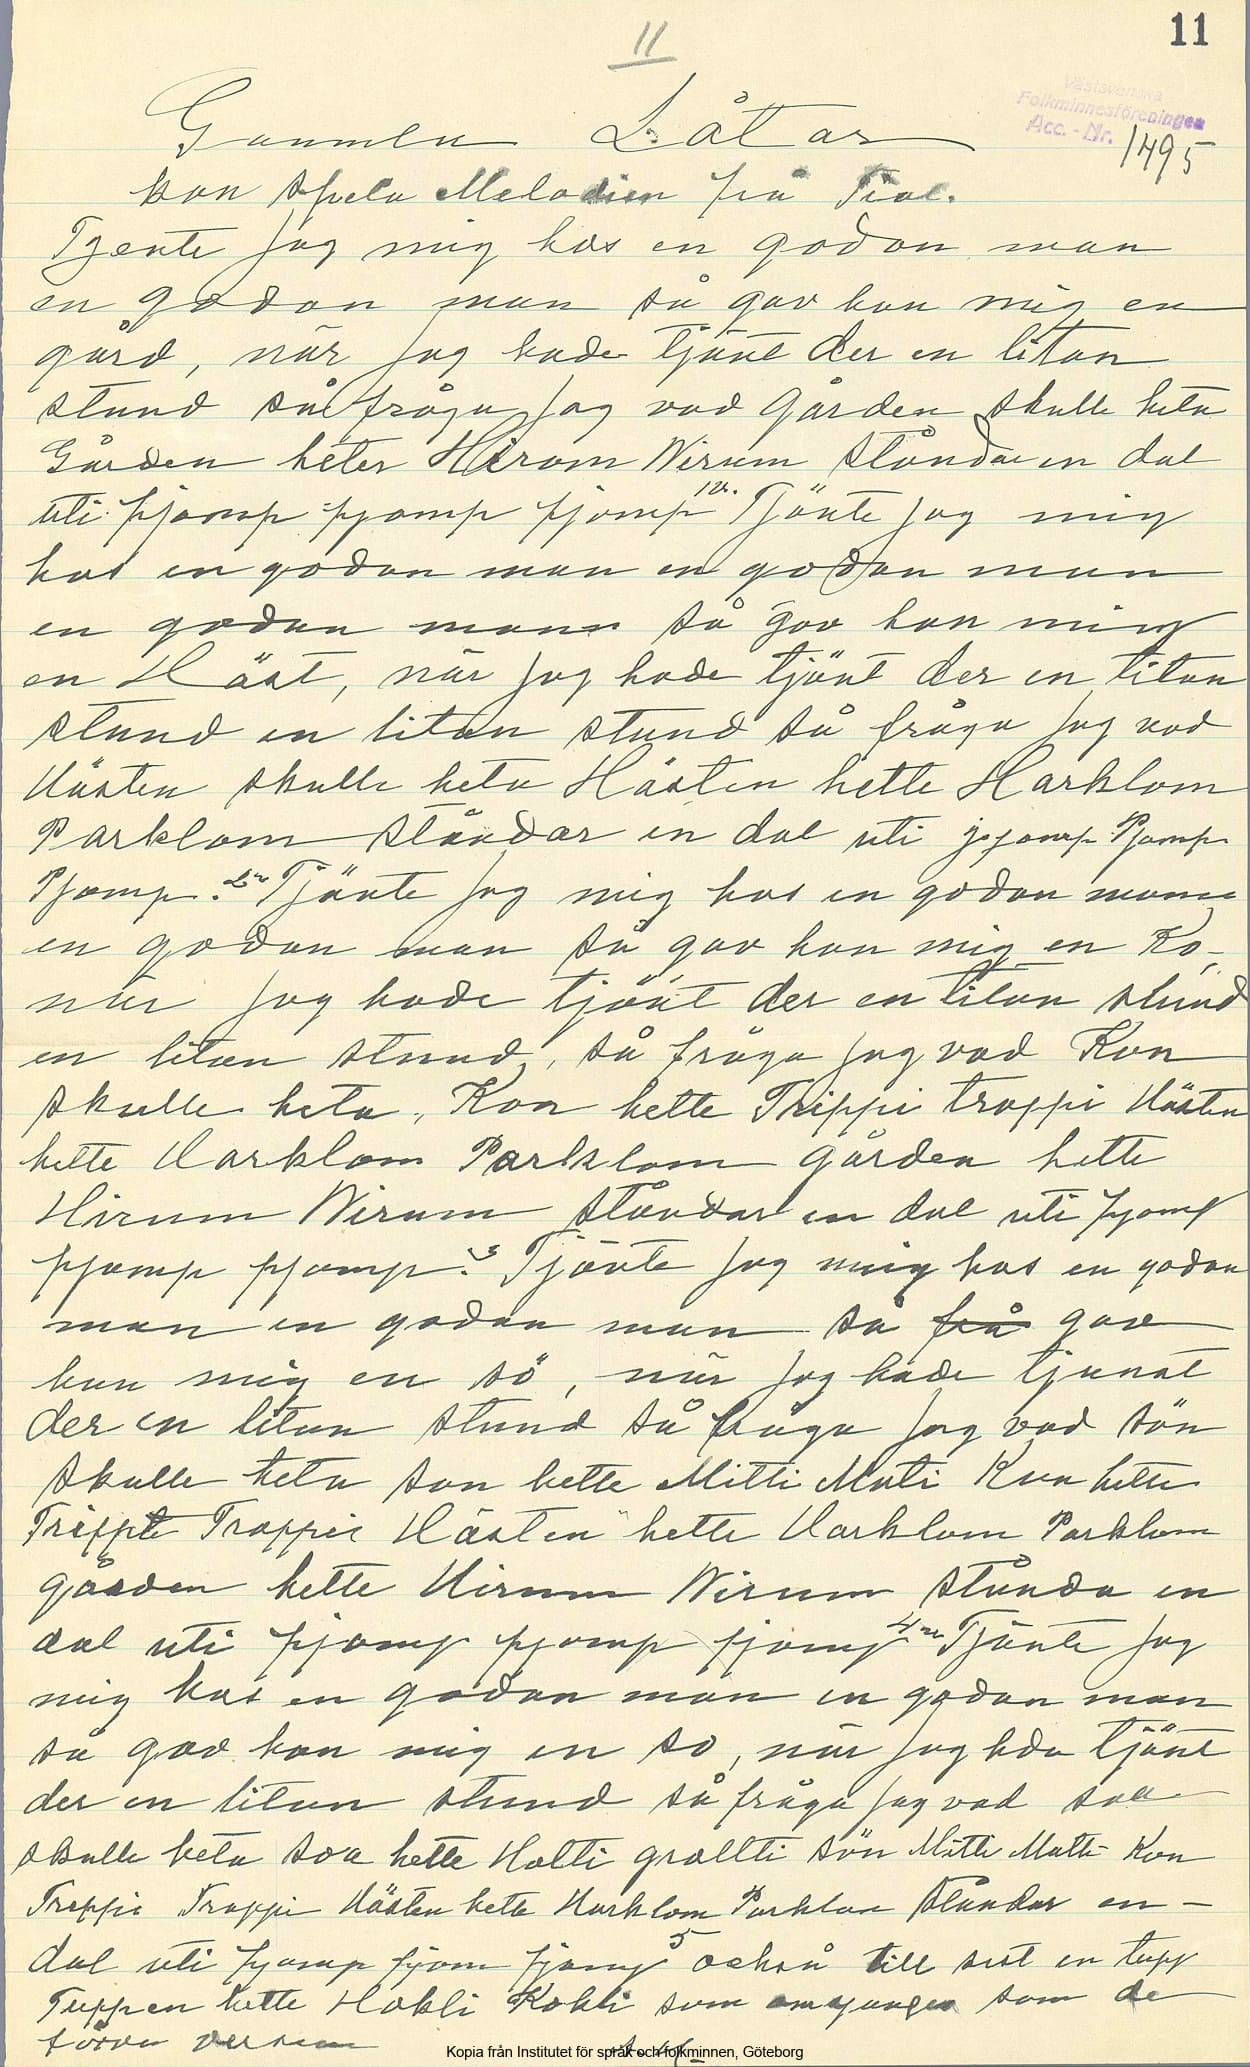 11
11
Västsvenska
Folkminnesföreningen
Acc. - Nr. 1495
Gammla Låtar
kan spela Melodien på Fiol.
Tjente jag mig hos en godan man
en godan man så gav han mig en
gård, när jag hade tjänt der en litan
stund så fråga jag vad Gården skulle heta
Gården heter Hirom Wirum ståndar en dal
uti pjomp pjomp pjomp 1v. Tjänte jag mig
hos en godan man en godan man
en godan mann så gav han mig
en Häst, när jag hade tjänt der en litan
stund en litan stund så fråga jag vad
Hästen skulle heta Hästen hette Harklom
Parklom ståndar en dal uti pjomp Pjomp
Pjomp. 2v Tjänte jag mig hos en godan mann
en godan man så gav han mig en Ko
när jag hade tjänt der en litan stund
en litan stund, så fråga jag vad Kon
skulle heta, Kon hette Trippi troppi Hästen
hette Harklom Parklom gården hette
Hirum Wirum ståndar en dal uti pjomp
pjomp pjomp. 3 Tjänte jag mig hos en godan
man en godan man så från gav
han mig en sö, när jag hade tjänat
der en litan stund så fråga jag vad sön
skulle heta son hette Mitti Mati Kon hette
Trippi Troppi Hästen hette Harklom Parklom
gården hette Hirum Wirum stånda en
dal uti pjomp pjomp pjomp 4v Tjänte jag
mig hos en godan man en godan man
så gav han mig en so, när jag hda tjänt
der en litan stund så fråga jag vad soa
skulle heta soa hette Holti grollti sön Mitti Matti Kon
Treppi Troppi Hästen hette Harklom Parklom ståndar en
dal uti pjomp pjom pjomp 5 också till sist en tupp
Tuppen hette Hokli Kokli som omgånger som de
förra versern
Kopia från Institutet för språk och folkminnen, Göteborg